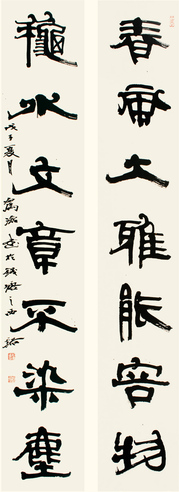 春風大雅能容物
秋水文章不染塵
戊子夏月